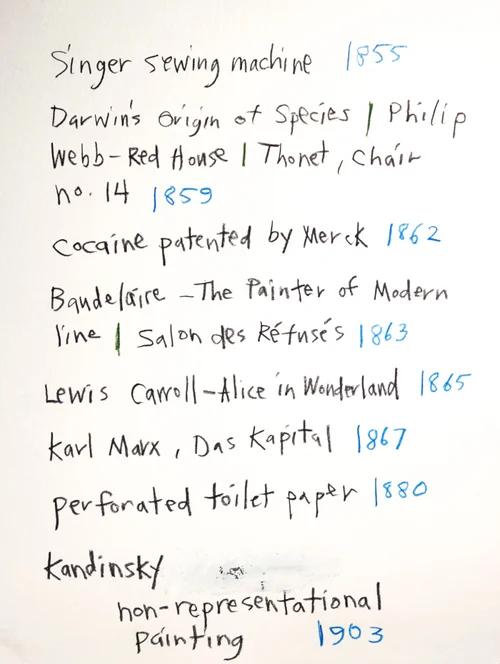 Singer sewing machine 1855
Darwin's Origin of Species | Philip
Webb - Red House | Thonet, Chair
no. 14 1859
Cocaine patented by Merck 1862
Baudelaire - The Painter of Modern
line | Salon des Réfusés 1863
Lewis Carroll - Alice in Wonderland 1865
Karl Marx, Das Kapital 1867
perforated toilet paper 1880
Kandinsky
non-representational
painting 1903